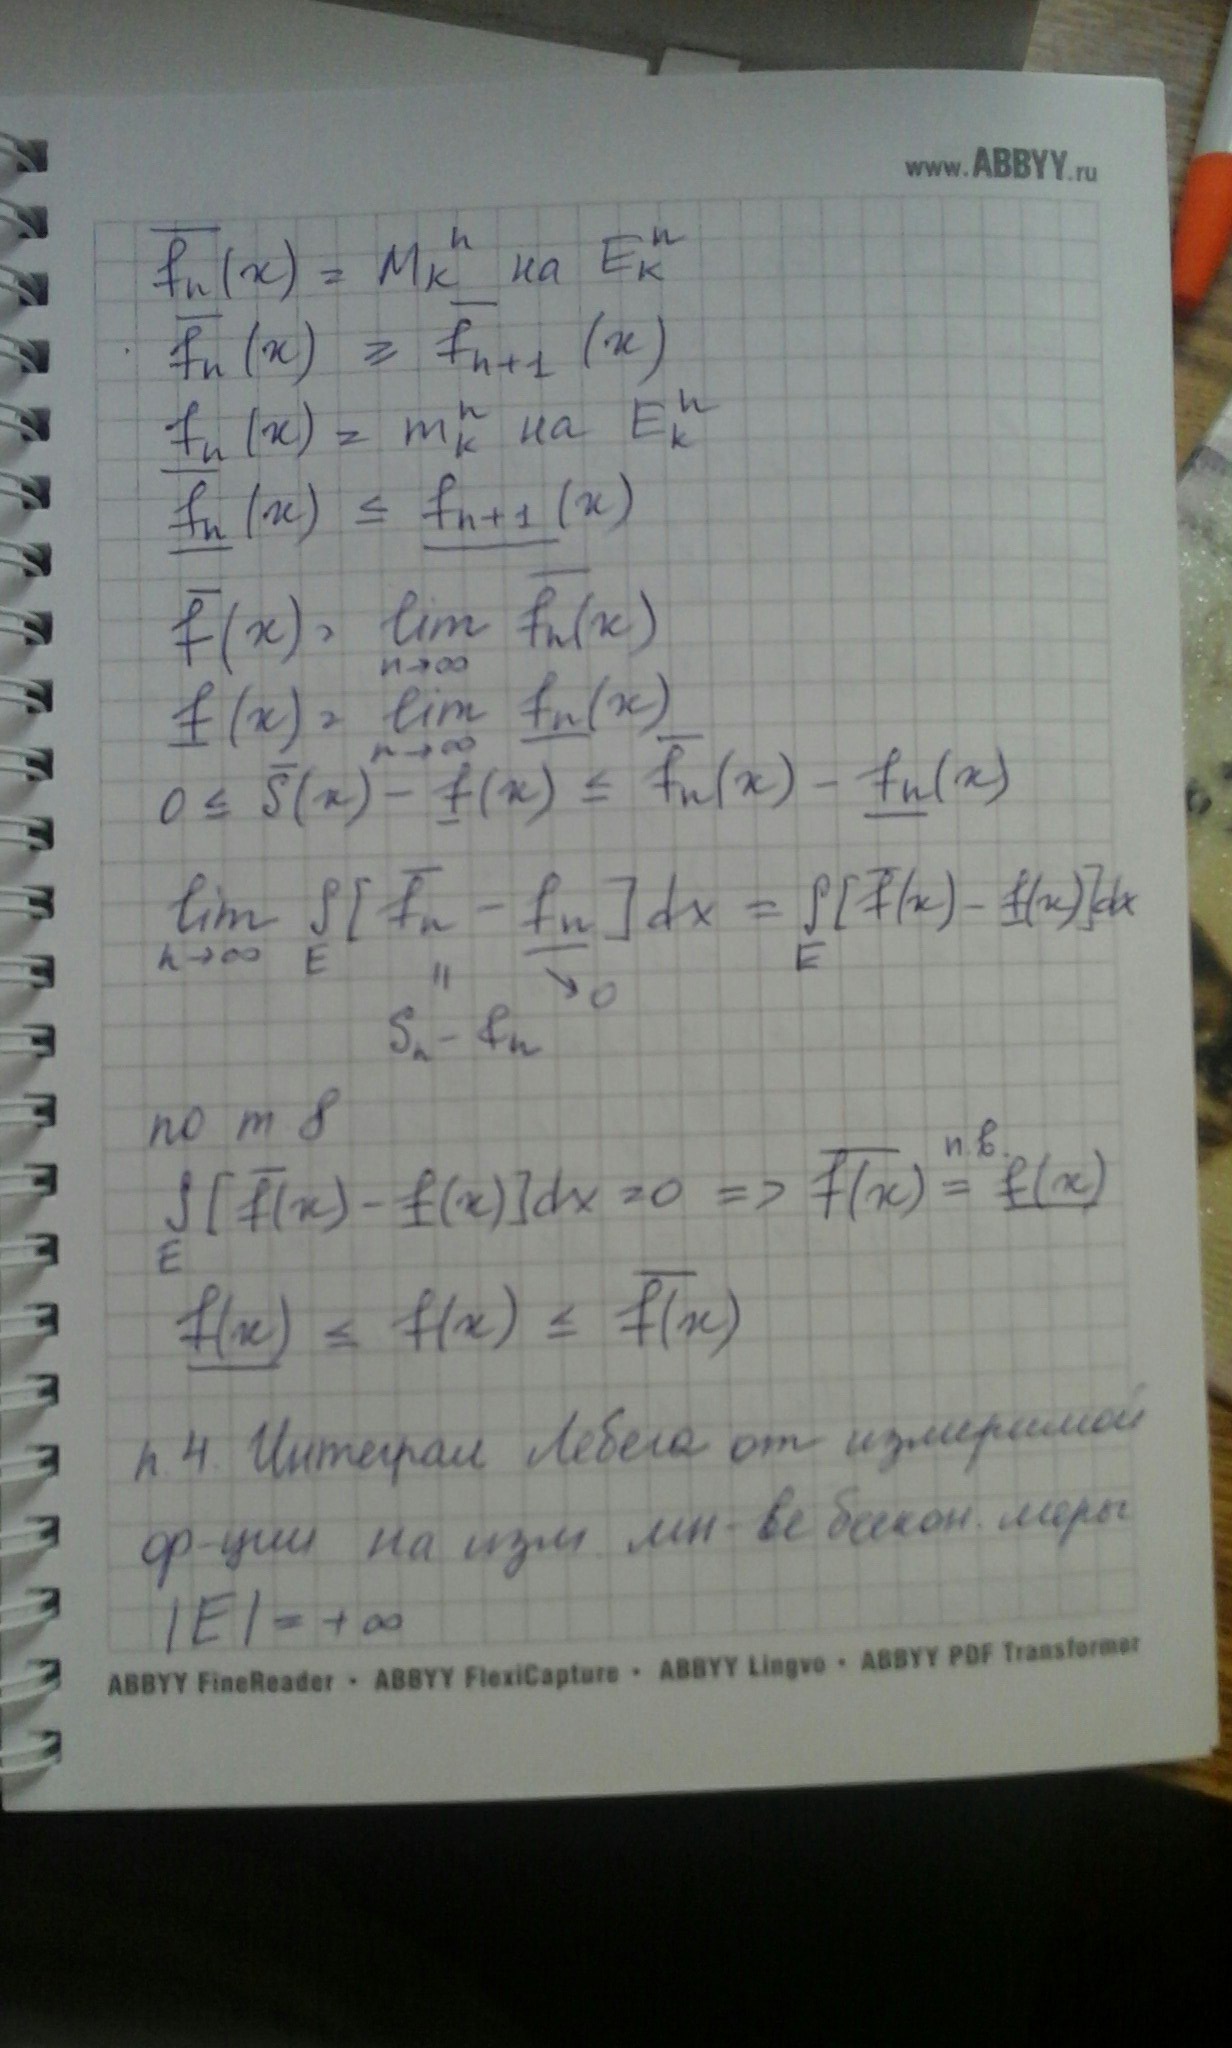 www.ABBYY.ru
f̅ₙ(x) = Mₖⁿ на Eₖⁿ
f̅ₙ(x) ≥ f̅ₙ₊₁(x)
f̲ₙ(x) = mₖⁿ на Eₖⁿ
f̲ₙ(x) ≤ f̲ₙ₊₁(x)
f̅(x) = lim f̅ₙ(x)
n→∞
f̲(x) = lim f̲ₙ(x)
n→∞
0 ≤ f̅(x) - f̲(x) ≤ f̅ₙ(x) - f̲ₙ(x)
lim ∫[f̅ₙ - f̲ₙ]dx = ∫[f̅(x) - f̲(x)]dx
n→∞ E E
॥ ↘0
Sₙ - sₙ
по т 8
∫[f̅(x) - f̲(x)]dx = 0 => f̅(x) п.в. = f̲(x)
E
f̲(x) ≤ f(x) ≤ f̅(x)
п.4. Интеграл Лебега от измеримой
ф-ции на изм. мн-ве бескон. меры
|E| = +∞
ABBYY FineReader • ABBYY FlexiCapture • ABBYY Lingvo • ABBYY PDF Transformer